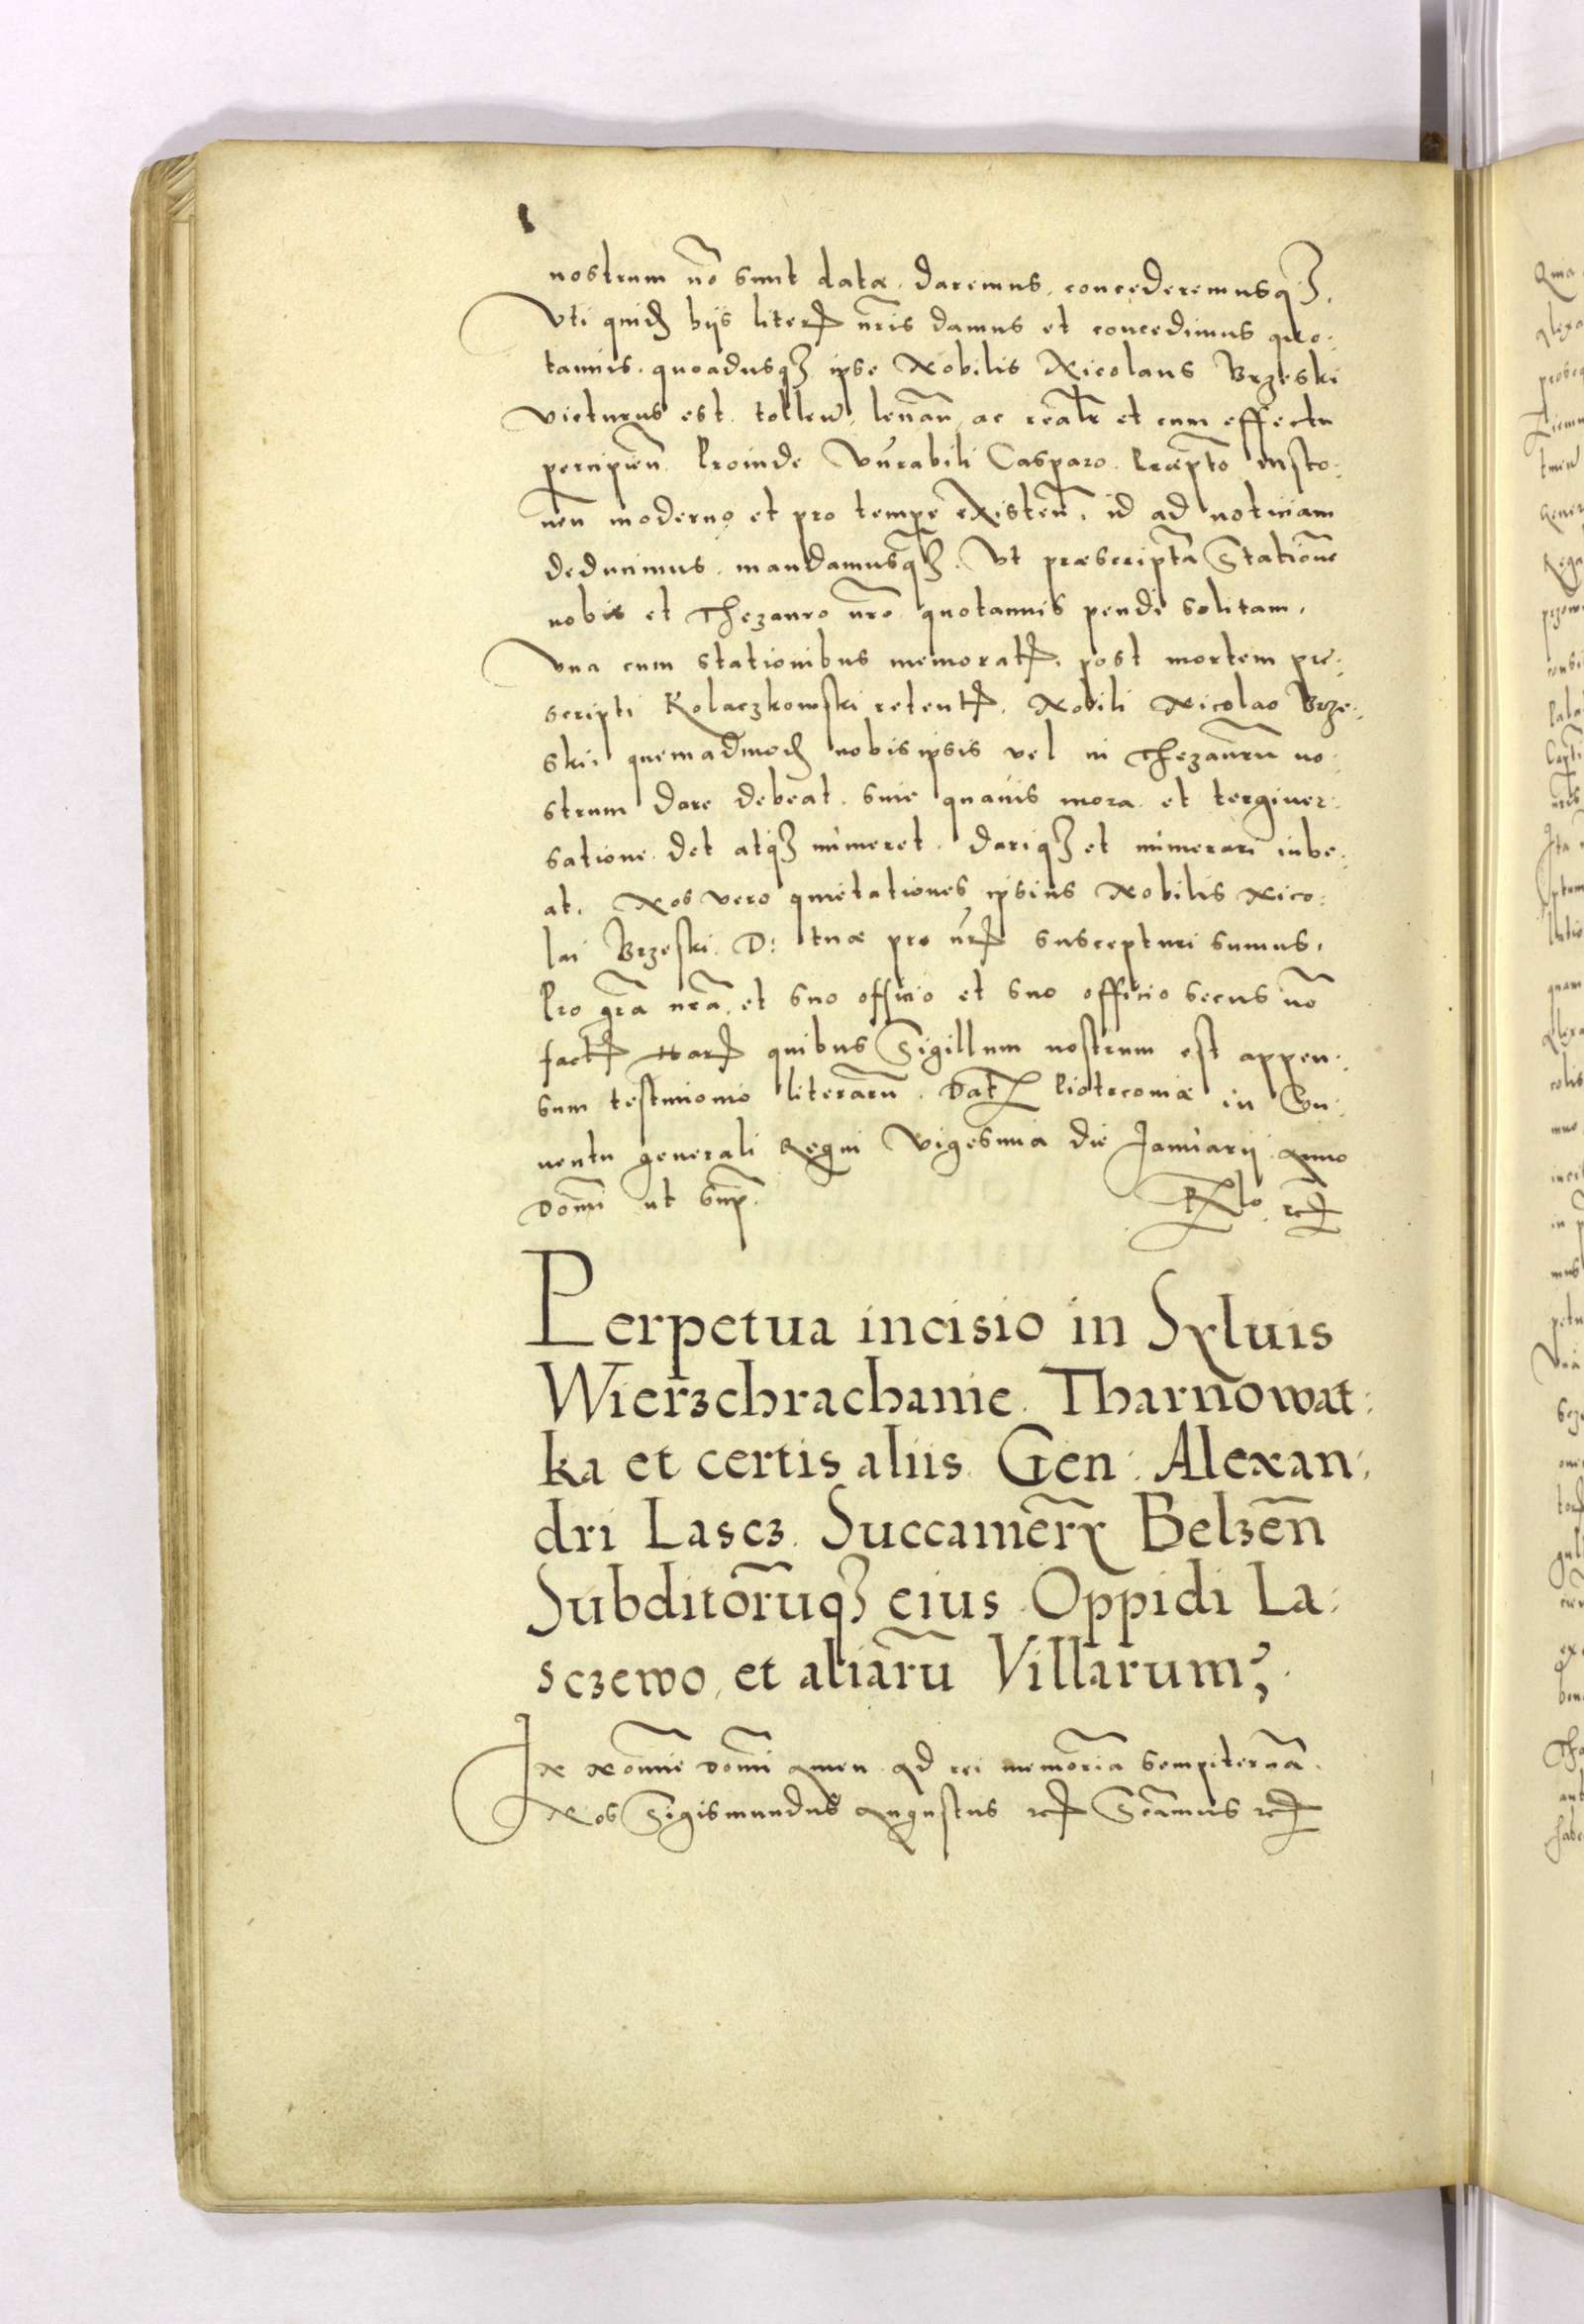 nostrum nõ sunt datæ. daremus, concederemusqꝫ.
Vti quidẽ hijs literꝭ nr̃is damus et concedimus quo:
tannis. quoadusqꝫ ipse Nobilis Nicolaus Brzeski
victurus est. tolleñ, leuañ ac realr̃ et cum effectu
percipieñ. Proinde Vnẽrabili Casparo
neñ moderno et pro tempe existeñ, id ad noticiam
deducimus. mandamusqꝫ. Vt præscriptã Stationẽ
nobis et Thezauro nr̃o quotannis pendi solitam,
Vna cum stationibus memoratꝭ. post mortem præ:
scripti Kolaczkowski retentꝭ. Nobili Nicolao Brze:
ski, quemadmodũ nobis ipsis vel in Thezaurũ no:
strum dare debeat. sine quauis mora et tergiuer:
satione. det atqꝫ numeret. dariqꝫ et numerari iube:
at. Nos vero quietationes ipsius Nobilis Nico:
lai Brzeski D: tuæ pro nr̃ꝭ suscepturi sumus.
Pro gr̃a nr̃a, et suo officio et suo officio secus nõ
factꝭ Harꝭ quibus Sigillum nostrum est appen:
sum testimonio literarũ. Datꝭ Piotrcouiæ in Cõn:
uentu generali Regni Vigesima die Januarij Anno
Domĩ ut supꝭ. Rlo. rcꝭ
Perpetua incisio in Syluis
Wierzchrachanie. Tharnowat:
ka et certis aliis. Gen: Alexan:
dri Lascz. Succamerꝭ Belzeñ
Subditorũqꝫ eius Oppidi La:
sczewo, et aliarũ Villarum;
IN Nomĩe Domĩ Amen Ad rei memoriã sempiternã.
Nos Sigismundus Augustus rcꝭ Sẽamus rcꝭ